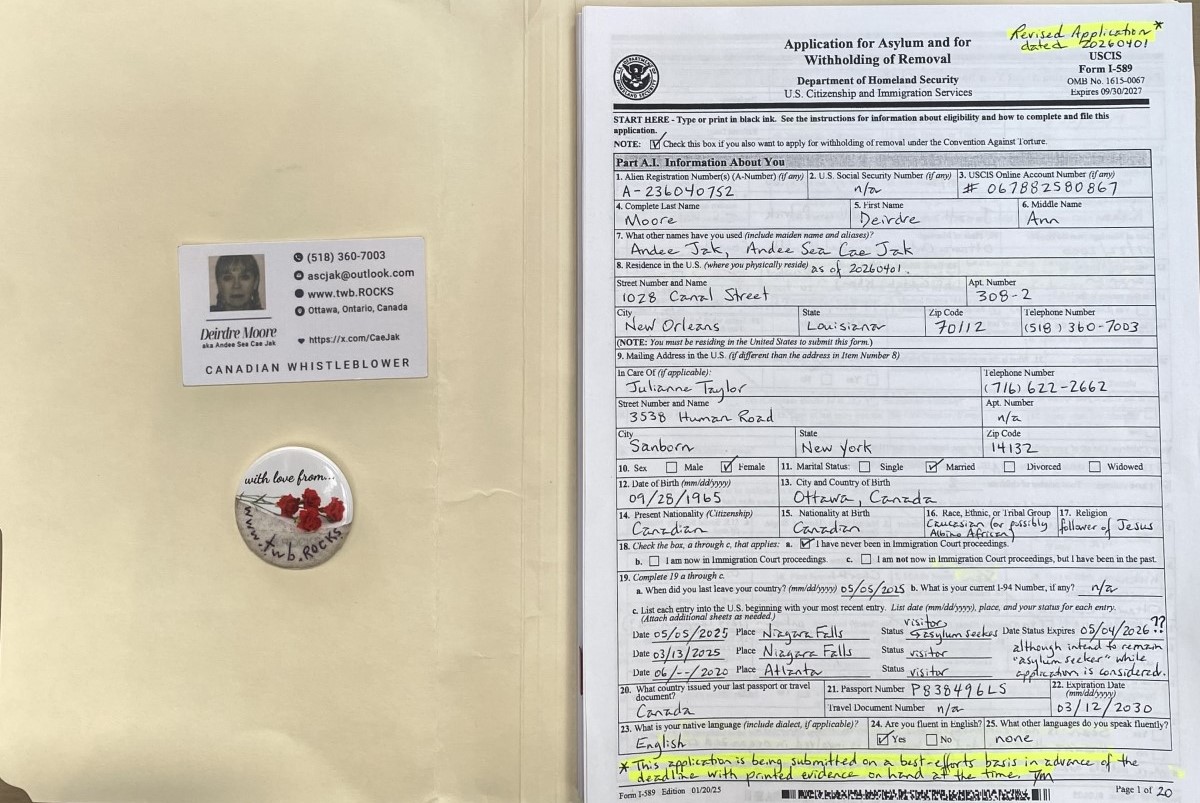 (518) 360-7003
ascjak@outlook.com
www.twb.ROCKS
Ottawa, Ontario, Canada
Deirdre Moore
aka Andee Sea Cae Jak
https://x.com/CaeJak
CANADIAN WHISTLEBLOWER
with love from...
www.twb.ROCKS
Revised Application *
dated 20260401
Application for Asylum and for
Withholding of Removal
Department of Homeland Security
U.S. Citizenship and Immigration Services
USCIS
Form I-589
OMB No. 1615-0067
Expires 09/30/2027
START HERE - Type or print in black ink. See the instructions for information about eligibility and how to complete and file this
application.
NOTE: Check this box if you also want to apply for withholding of removal under the Convention Against Torture.
Part A.I. Information About You
1. Alien Registration Number(s) (A-Number) (if any) 2. U.S. Social Security Number (if any) 3. USCIS Online Account Number (if any)
A-236040752 n/a # 067882580867
4. Complete Last Name 5. First Name 6. Middle Name
Moore Deirdre Ann
7. What other names have you used (include maiden name and aliases)?
Andee Jak, Andee Sea Cae Jak
8. Residence in the U.S. (where you physically reside) as of 20260401.
Street Number and Name Apt. Number
1028 Canal Street 308-2
City State Zip Code Telephone Number
New Orleans Louisiana 70112 (518) 360-7003
(NOTE: You must be residing in the United States to submit this form.)
9. Mailing Address in the U.S. (if different than the address in Item Number 8)
In Care Of (if applicable): Telephone Number
Julianne Taylor (716) 622-2662
Street Number and Name Apt. Number
3538 Human Road n/a
City State Zip Code
Sanborn New York 14132
10. Sex Male Female 11. Marital Status: Single Married Divorced Widowed
12. Date of Birth (mm/dd/yyyy) 13. City and Country of Birth
09/28/1965 Ottawa, Canada
14. Present Nationality (Citizenship) 15. Nationality at Birth 16. Race, Ethnic, or Tribal Group 17. Religion
Canadian Canadian Caucasian (or possibly Albino African) follower of Jesus
18. Check the box, a through c, that applies: a. I have never been in Immigration Court proceedings.
b. I am now in Immigration Court proceedings. c. I am not now in Immigration Court proceedings, but I have been in the past.
19. Complete 19 a through c.
a. When did you last leave your country? (mm/dd/yyyy) 05/05/2025 b. What is your current I-94 Number, if any? n/a
c. List each entry into the U.S. beginning with your most recent entry. List date (mm/dd/yyyy), place, and your status for each entry.
(Attach additional sheets as needed.)
visitor
Date 05/05/2025 Place Niagara Falls Status asylum seeker Date Status Expires 05/04/2026 ??
Date 03/13/2025 Place Niagara Falls Status visitor
Date 06/--/2020 Place Atlanta Status visitor
although intend to remain
"asylum seeker" while
application is considered.
20. What country issued your last passport or travel
document?
Canada
21. Passport Number P838496LS
Travel Document Number n/a
22. Expiration Date
(mm/dd/yyyy)
03/12/2030
23. What is your native language (include dialect, if applicable)? 24. Are you fluent in English? 25. What other languages do you speak fluently?
English Yes No none
* This application is being submitted on a best-efforts basis in advance of the
deadline with printed evidence on hand at the time.
Form I-589 Edition 01/20/25 Page 1 of 20